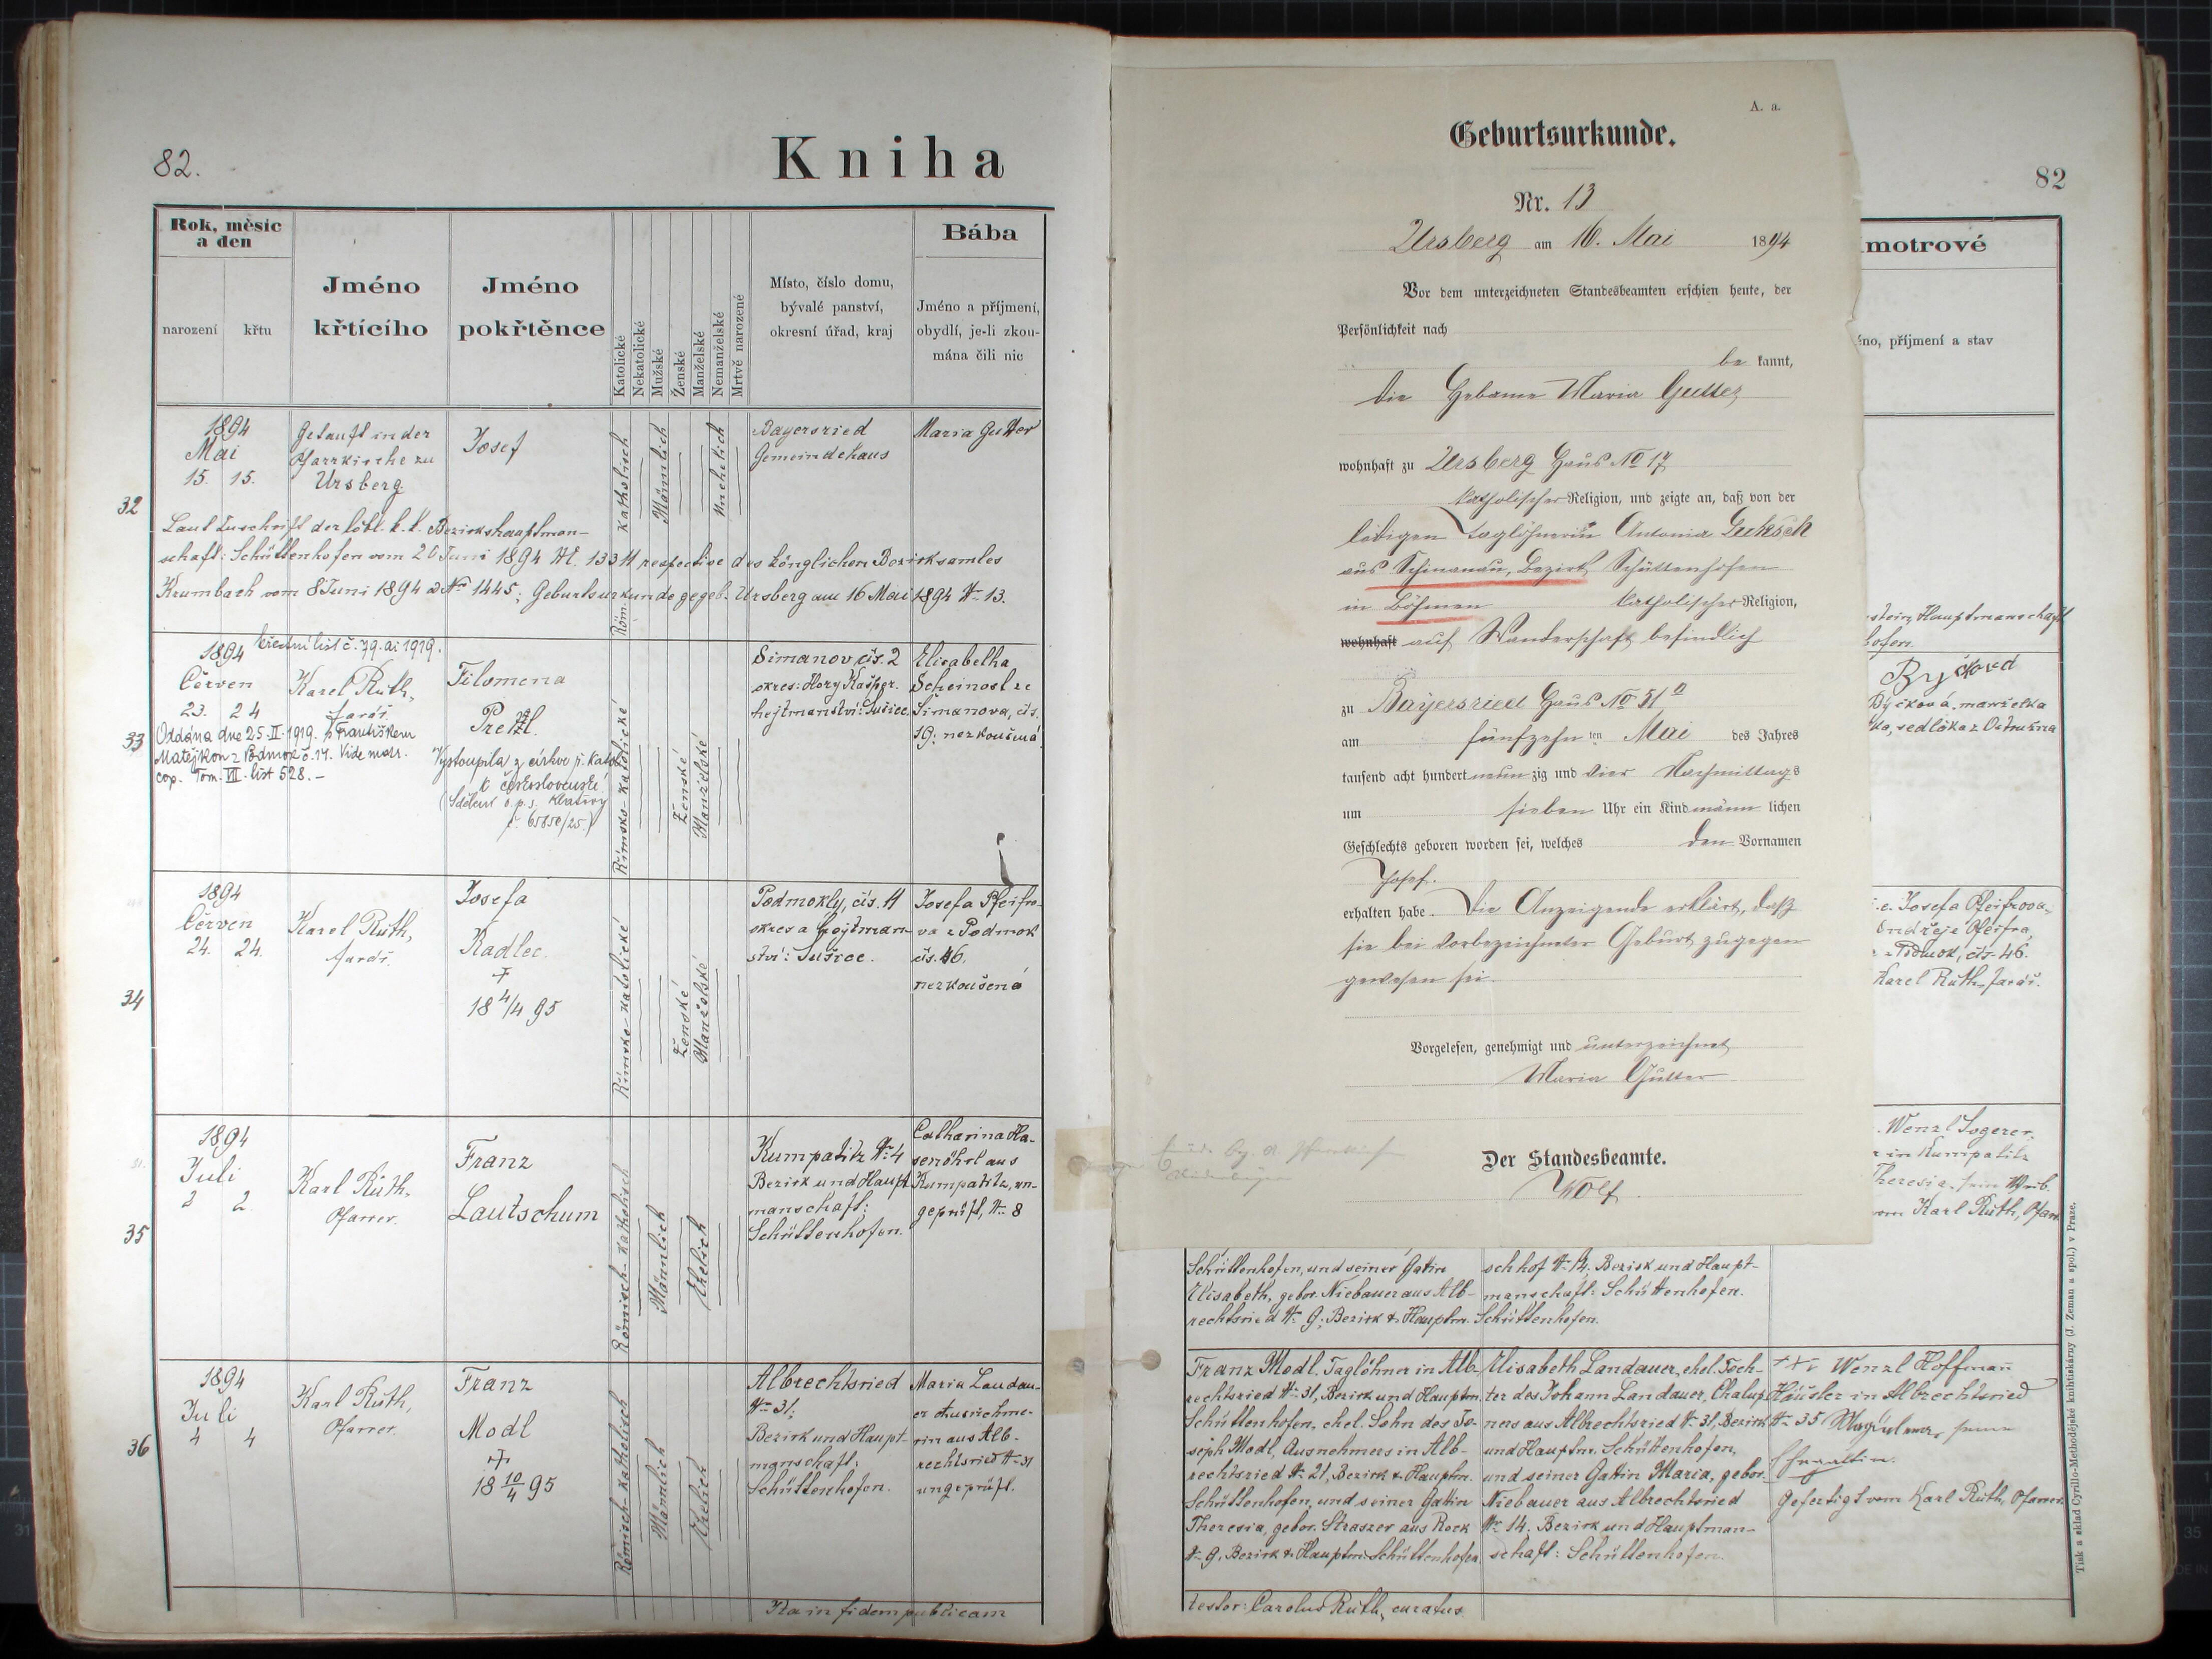 82.
Kniha
Rok, měsíc
a den
narození
křtu
Jméno
křtícího
Jméno
pokřtěnce
Katolické
Nekatolické
Mužské
Ženské
Manželské
Nemanželské
Mrtvě narozené
Místo, číslo domu,
bývalé panství,
okresní úřad, kraj
Bába
Jméno a příjmení,
obydlí, je-li zkou-
mána čili nic
32
1894
Mai
15. 15.
Getauft in der
Pfarrkirche zu
Ursberg
Josef
Röm. Katholisch
Männlich
Unehelich
Bayersried
Gemeindehaus
Maria Gutter
Laut Zuschrift der löbl. k. k. Bezirkshauptman-
schaft: Schüttenhofen vom 20 Juni 1894 respective des königlichen Bezirksamtes
Krumbach vom 8 Juni 1894 No 1445; Geburtsurkunde gegeb. Ursberg am 16 Mai 1894 No 13.
33
1894 křestní list č. 79. ai 1919.
Červen
23. 24
Karel Rüth,
farář.
Filomena
Pretzl.
Oddána dne 25. II. 1919. s Františkem
Matějkou z Podmok č. 14. Vide matr.
cop. Tom. VII. list 528. —
Vystoupila z církve ř. katol.
k československé
(Sdělení o. p. s. Klatovy
č. 65850/25.)
Římsko-katolické
Ženské
Manželské
Šimanov, čís. 2
okres: Hory Kašper.
hejtmanství: Sušice.
Elisabetha
Scheinost ze
Šimanova, čís.
19; nezkoušená
34
1894
Červen
24. 24.
Karel Rüth,
farář.
Josefa
Radlec.
†
18 4/4 95
Římsko-katolické
Ženské
Manželské
Podmokly, čís. 11
okres a hejtman-
ství: Sušice.
Josefa Pfeifro-
va z Podmok
čís. 46,
nezkoušená
35
1894
Juli
2 2.
Karl Rüth,
Pfarrer.
Franz
Lautschum
Römisch-Katholisch
Männlich
Ehelich
Kumpatitz No 4
Bezirk und Haupt-
manschaft:
Schüttenhofen.
Catharina Ha-
senöhrl aus
Kumpatitz, un-
geprüft, No 8
36
1894
Juli
4 4
Karl Rüth,
Pfarrer.
Franz
Modl
†
18 10/4 95
Römisch-Katholisch
Männlich
Ehelich
Albrechtsried
No 31;
Bezirk und Haupt-
manschaft:
Schüttenhofen.
Maria Landau-
er Ausnehme-
rin aus Alb-
rechtsried No 31
ungeprüft.
Ita in fidem publicam
A. a.
Geburtsurkunde.
Nr. 13
Ursberg am 16. Mai 1894
Vor dem unterzeichneten Standesbeamten erschien heute, der
Persönlichkeit nach
be kannt,
die Hebame Maria Gutter
wohnhaft zu Ursberg Haus No 17
katholischer Religion, und zeigte an, daß von der
ledigen Taglöhnerin Antonia
aus Schimanau, Bezirk Schüttenhofen
in Böhmen katholischer Religion,
wohnhaft auf Wanderschaft befindlich
zu Bayersried Haus No 51 a
am fünfzehn ten Mai des Jahres
tausend acht hundert neun zig und vier Nachmittags
um sieben Uhr ein Kind männ lichen
Geschlechts geboren worden sei, welches den Vornamen
Josef.
erhalten habe. Die Anzeigende erklärt, daß
sie bei vorbezeichneter Geburt zugegen
gewesen sei.
Vorgelesen, genehmigt und unterzeichnet
Maria Gutter
Der Standesbeamte.
Wolf
82
motrové
no, příjmení a stav
stein, Hauptmanschaft
hofen.
Byčková, manželka
ka, sedláka z Ostružna
e. Josefa Pfeifrova,
Ondřeje Pfeifra,
z Podmok, čís. 46.
Karel Rüth, farář.
Wenzl Sogerer,
in Kumpatitz
Theresia, sein Weib.
vom Karl Rüth, Pfarr.
Schüttenhofen, und seiner Gattin
Elisabeth, gebor. Niebauer aus Alb-
rechtsried No 9; Bezirk & Hauptm. Schüttenhofen.
schhof No 14. Bezirk und Haupt-
manschaft: Schüttenhofen.
Franz Modl, Taglöhner in Alb-
rechtsried No 31, Bezirk und Hauptm.
Schüttenhofen, ehel. Sohn des Jo-
seph Modl, Ausnehmers in Alb-
rechtsried No 21, Bezirk & Hauptm.
Schüttenhofen, und seiner Gattin
Theresia, gebor. Straszer aus Rock
No 9, Bezirk & Hauptm. Schüttenhofen.
Elisabeth Landauer, ehel. Toch-
ter des Johann Landauer, Chalup-
ners aus Albrechtsried No 31, Bezirk
und Hauptm. Schüttenhofen,
und seiner Gattin Maria, gebor.
Niebauer aus Albrechtsried
No 14, Bezirk und Hauptman-
schaft: Schüttenhofen.
+++ Wenzl Hoffmann
Häusler in Albrechtsried
No 35
Gefertigt vom Karl Rüth, Pfarrer.
testor: Carolus Rüth, curatus
Tisk a sklad Cyrillo-Methodějské knihtiskárny (J. Zeman a spol.) v Praze.